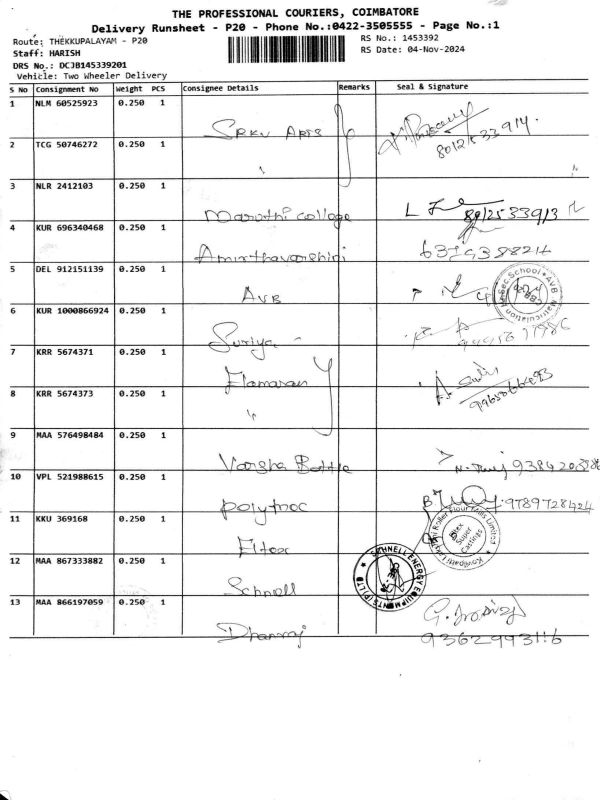 THE PROFESSIONAL COURIERS, COIMBATORE
Delivery Runsheet - P20 - Phone No.:0422-3505555 - Page No.:1
Route: THEKKUPALAYAM - P20 RS No.: 1453392
Staff: HARISH RS Date: 04-Nov-2024
DRS No.: DCJB145339201
Vehicle: Two Wheeler Delivery
S No Consignment No Weight PCS Consignee Details Remarks Seal & Signature
1 NLM 60525923 0.250 1 SRKV Arts 8012533914.
2 TCG 50746272 0.250 1 "
3 NLR 2412103 0.250 1 Maruthi college 8012533913
4 KUR 696340468 0.250 1 Amirthavarshini
5 DEL 912151139 0.250 1 AVB
6 KUR 1000866924 0.250 1 Suriya
7 KRR 5674371 0.250 1 Elamaran
8 KRR 5674373 0.250 1 "
9 MAA 576498484 0.250 1 Varsha Bottle
10 VPL 521988615 0.250 1 polytroc 9789728424
11 KKU 369168 0.250 1 Eltex Roller Flour Mills Limited
12 MAA 867333882 0.250 1 Schnell SCHNELL ENERGY EQUIPMENTS (P) LTD
13 MAA 866197059 0.250 1 Dhanraj 9362993116